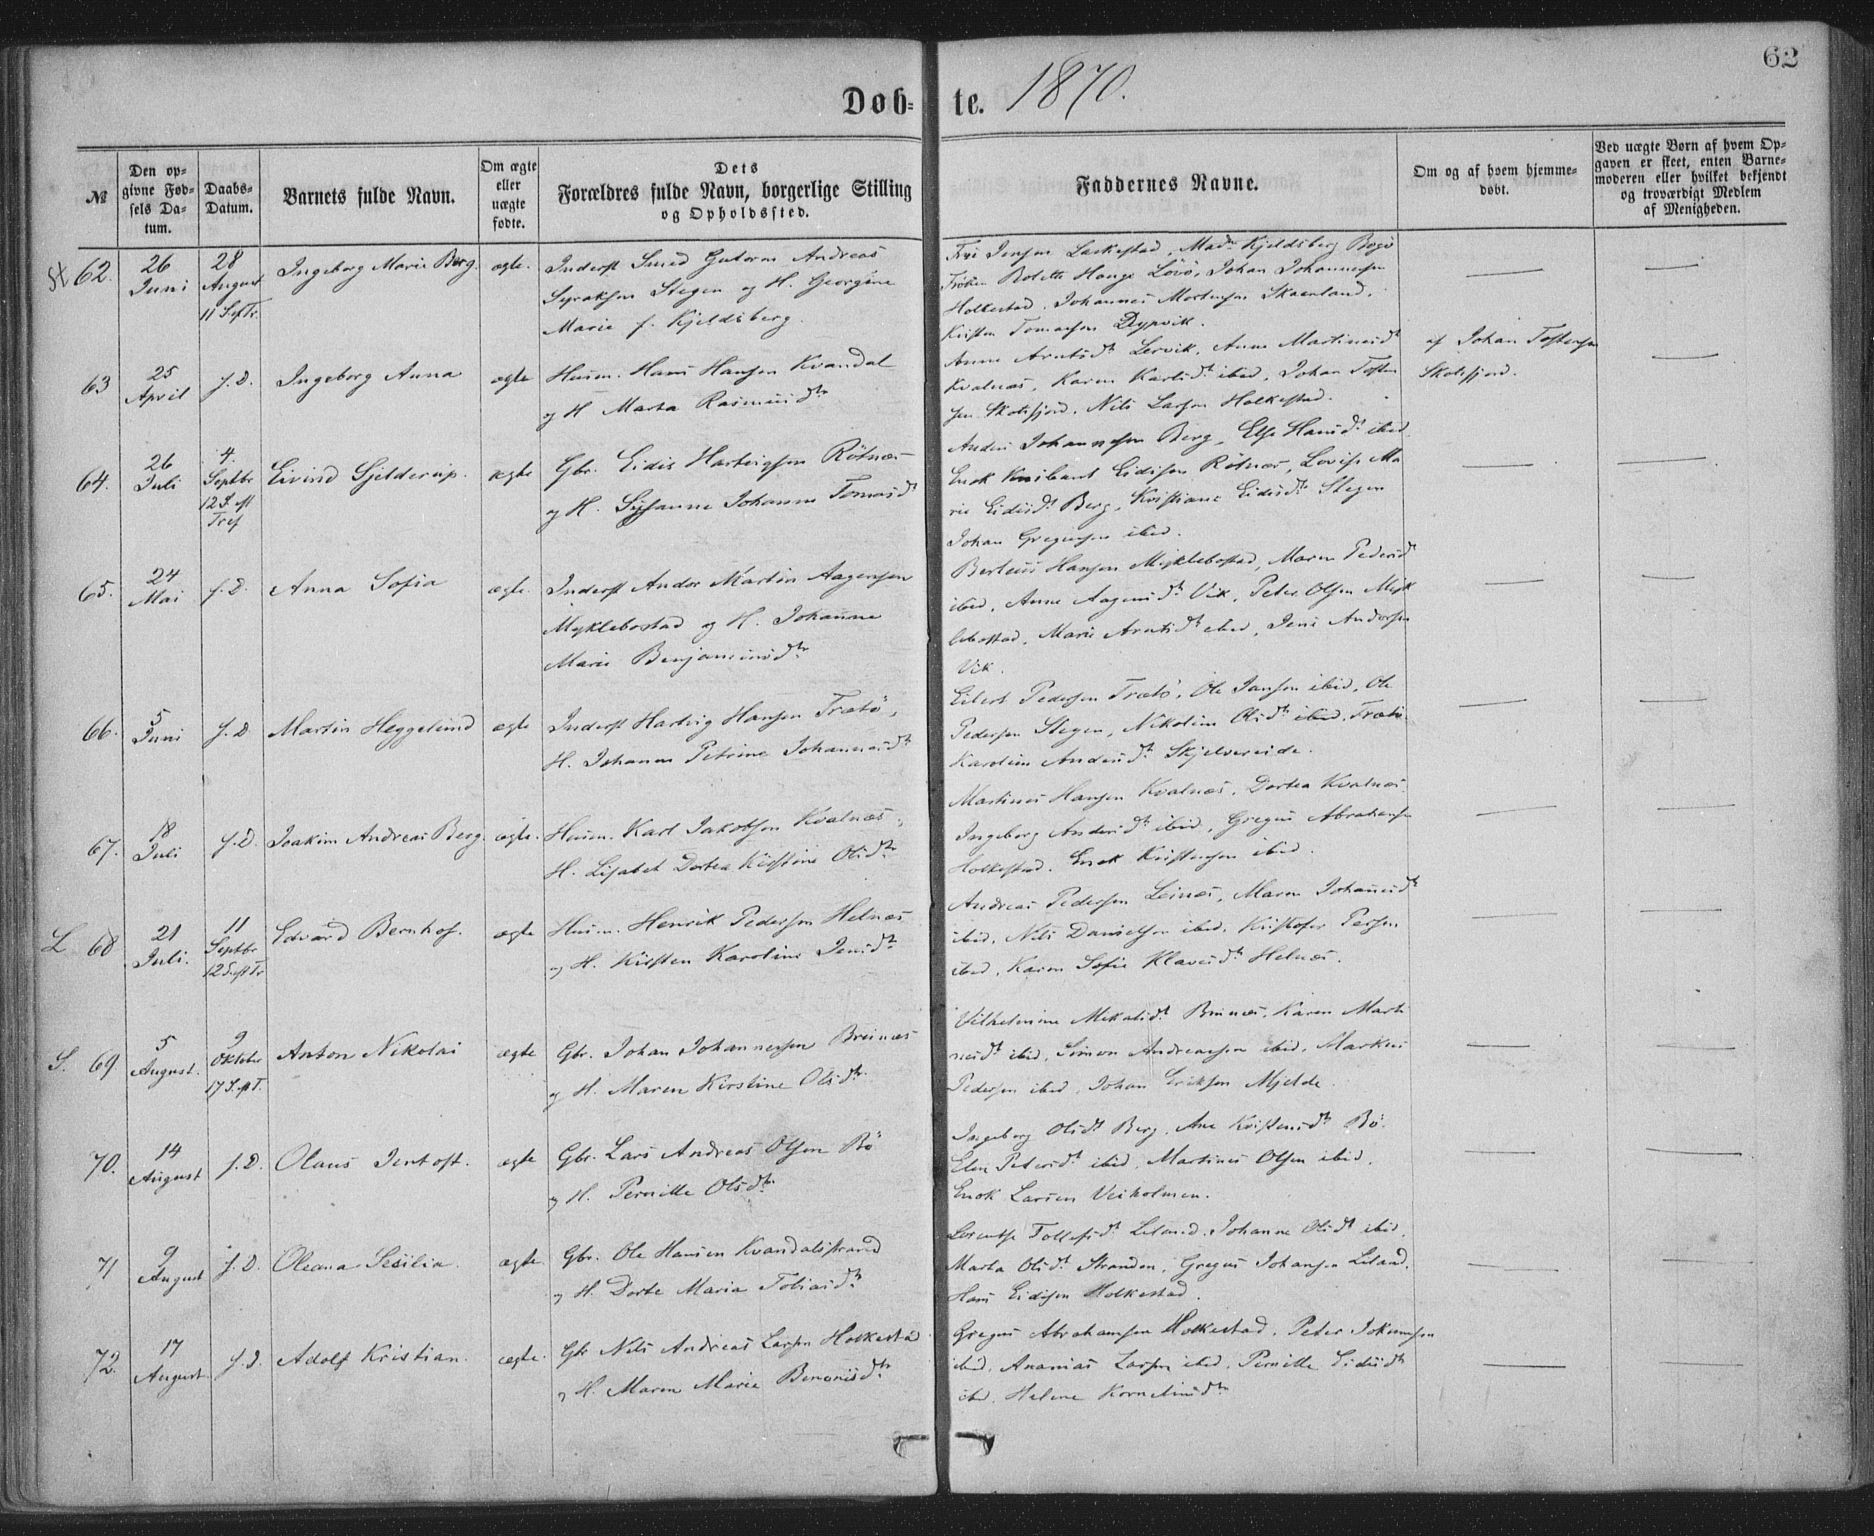 62
Døb- te. 1870.
№
Den op-
givne Fød-
sels Da-
tum.
Daabs-
Datum.
Barnets fulde Navn.
Om ægte
eller
uægte
fødte.
Dets
Forældres fulde Navn, borgerlige Stilling
og Opholdssted.
Faddernes Navne.
Om og af hvem hjemme-
døbt.
Ved uægte Børn af hvem Op-
gaven er skeet, enten Barne-
moderen eller hvilket bekjendt
og troværdigt Medlem
af Menigheden.
St 62.
26
Juni
28
August
11 S.e.Tr.
Ingeborg Marie Berg.
ægte.
Inderst Smed Gutorm Andreas
Syraksen Stegen og H. Georgine
Marie f. Kjeldsberg.
Jensen Laskestad, Mad. Kjeldsberg Bogö
Fröken Bolette Hauge Lövö, Johan Johannesen
Holkestad, Johannes Mortensen Skaanland,
Kristen Tomassen Dypvik.
63
25
April
f. D.
Ingeborg Anna
ægte
Husm. Hans Hansen Kvandal
og H. Marta Rasmusdtr
Anne Arntsdtr Lervik, Anne Martinusdtr
Kvalnæs, Karen Karlsdtr ibid, Johan Tosten
sen Skotsfjord, Nils Larsen Holkestad.
af Johan Tostensen
Skotsfjord.
64.
26
Juli
4
Septbr
12 S. eft
Tref
Eivind Gjelderup.
ægte
Gbr. Eidis Hartvigsen Rötnæs
og H. Susanne Johanna Tomasdtr
Anders Johannesen Berg, Else Hansdtr ibid
Enok Eidisen Rötnæs, Lovise Ma
rie Eidisdtr Berg, Kristiane Eidisdtr Stegen
Johan Gregussen ibid.
65.
24
Mai
f. D.
Anna Sofia
ægte.
Inderst Andor Martin Aagensen
Myklebostad og H. Johanne
Marie Benjaminsdtr
Berteus Hansen Myklebostad, Maren Pedersdtr
ibid, Anne Aagensdtr Vik, Peter Olsen Myk
lebostad, Marie Arntsdtr ibid, Jens Andorsen
Vik.
66.
5
Juni
f. D
Martin Heggelund
ægte
Inderst Hartvig Hansen Trætö,
H. Johanna Petrine Johannesdtr
Eilert Pedersen Trætö, Ole Jansen ibid, Ole
Pedersen Stegen, Nikoline Olsdtr ibid. Trætö
Karoline Andersdtr Skjelvereide.
67.
18
Juli
f. D.
Joakim Andreas Berg.
ægte.
Husm. Karl Jakobsen Kvalnæs,
H. Lisabet Dortea Kirstine Olsdtr
Martinus Hansen Kvalnæs, Dortea Kvalnæs
Ingeborg Andersdtr ibid, Gregus Abrahamsen
Holkestad, Enok Kristensen ibid.
L 68
21
Juli.
11
Septbr
12 S.eft Tr
Edvard Bernhof.
ægte
Husm. Henrik Pedersen Helnæs
og H. Kirsten Karoline Jensdtr
Andreas Pedersen Leinæs, Maren Johansdtr
ibid, Nils Danielsen ibid, Kristofer Persen
ibid, Karen Sofie Klausdtr Helnæs.
S. 69
5
August.
9
Oktobr
17 S. eft T.
Anton Nikolai
ægte
Gbr. Johan Johannesen Breinæs
og H. Maren Kirstine Olsdtr
Vilhelmine Mikalsdtr Brinæs, Karen Marti
nusdtr ibid, Simon Andreassen ibid, Markus
Pedersen ibid, Johan Eriksen Mjelde.
70.
14
August
f. D.
Olaus Jentoft.
ægte
Gbr. Lars Andreas Olsen Bö
og H. Pernille Olsdtr
Ingeborg Olsdtr Berg, Ane Kristensdtr Bö.
Elen Petersdtr ibid, Martinus Olsen ibid,
Enok Larsen Veiholmen.
71
9
August
f. D.
Oleana Sesilia.
ægte.
Gbr. Ole Hansen Kvandalstrand
og H. Dorte Maria Tobiasdtr
Lorentse Tollefsdtr Leland, Johanne Olsdtr ibid,
Marta Olsdtr Stranden, Gregus Johansen Leland,
Hans Eidisen Holkestad.
72.
17
August.
f. D
Adolf Kristian.
ægte.
Gbr Nils Andreas Larsen Holkestad
og H. Maren Marie Benonisdtr
Gregus Abrahamsen Holkestad, Peter Jokumsen
ibid, Ananias Larsen ibid, Pernille Eidisdtr
ibid, Helene Korneliusdtr